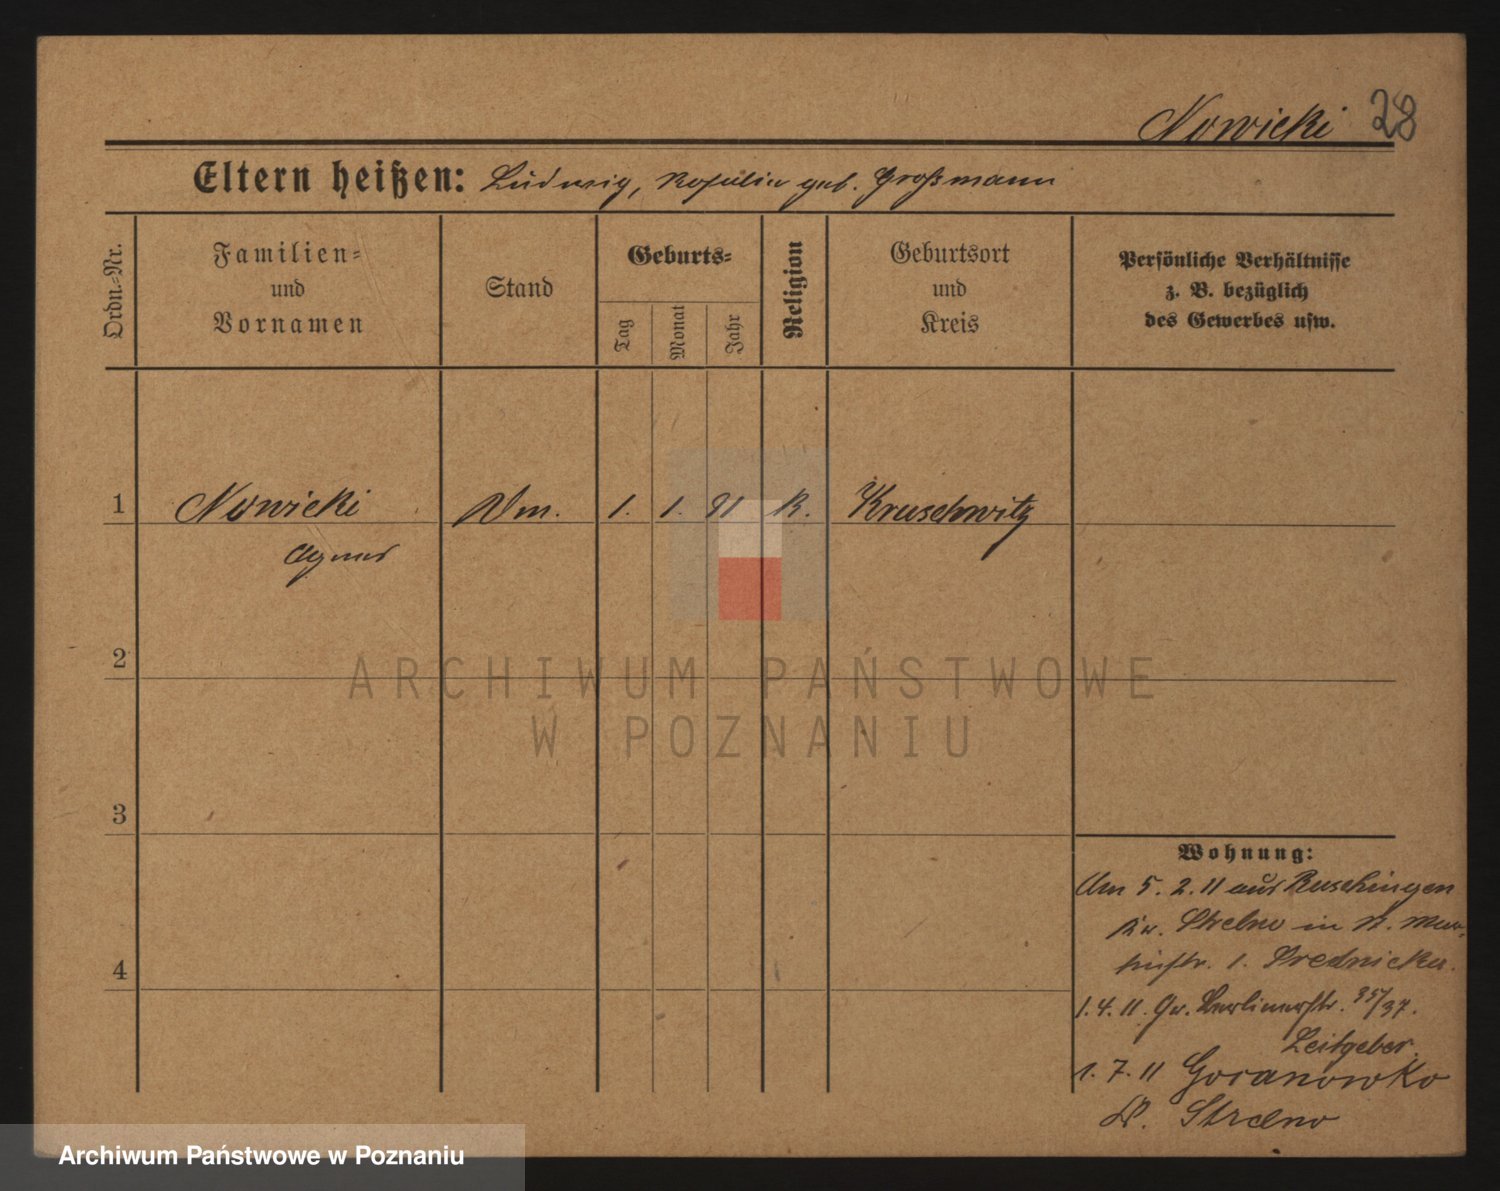 Nowicki 28
Eltern heißen: Ludwig, Rosalie geb. Großmann
Ordn.-Nr.
Familien-
und
Vornamen
Stand
Geburts-
Tag
Monat
Jahr
Religion
Geburtsort
und
Kreis
Persönliche Verhältnisse
z. B. bezüglich
des Gewerbes usw.
1 Nowicki 1. 1. 91 K. Kruschwitz
Agnes
2
3
4
Wohnung:
Am 5. 2. 11 aus
Kr. Strelno in St. Mar-
tinstr. 1. Srednicka.
1. 4. 11. Gr. Berlinerstr. 35/37.
Leitgeber.
1. 7. 11 Goranowko
Kr. Strelno
ARCHIWUM PAŃSTWOWE
W POZNANIU
Archiwum Państwowe w Poznaniu